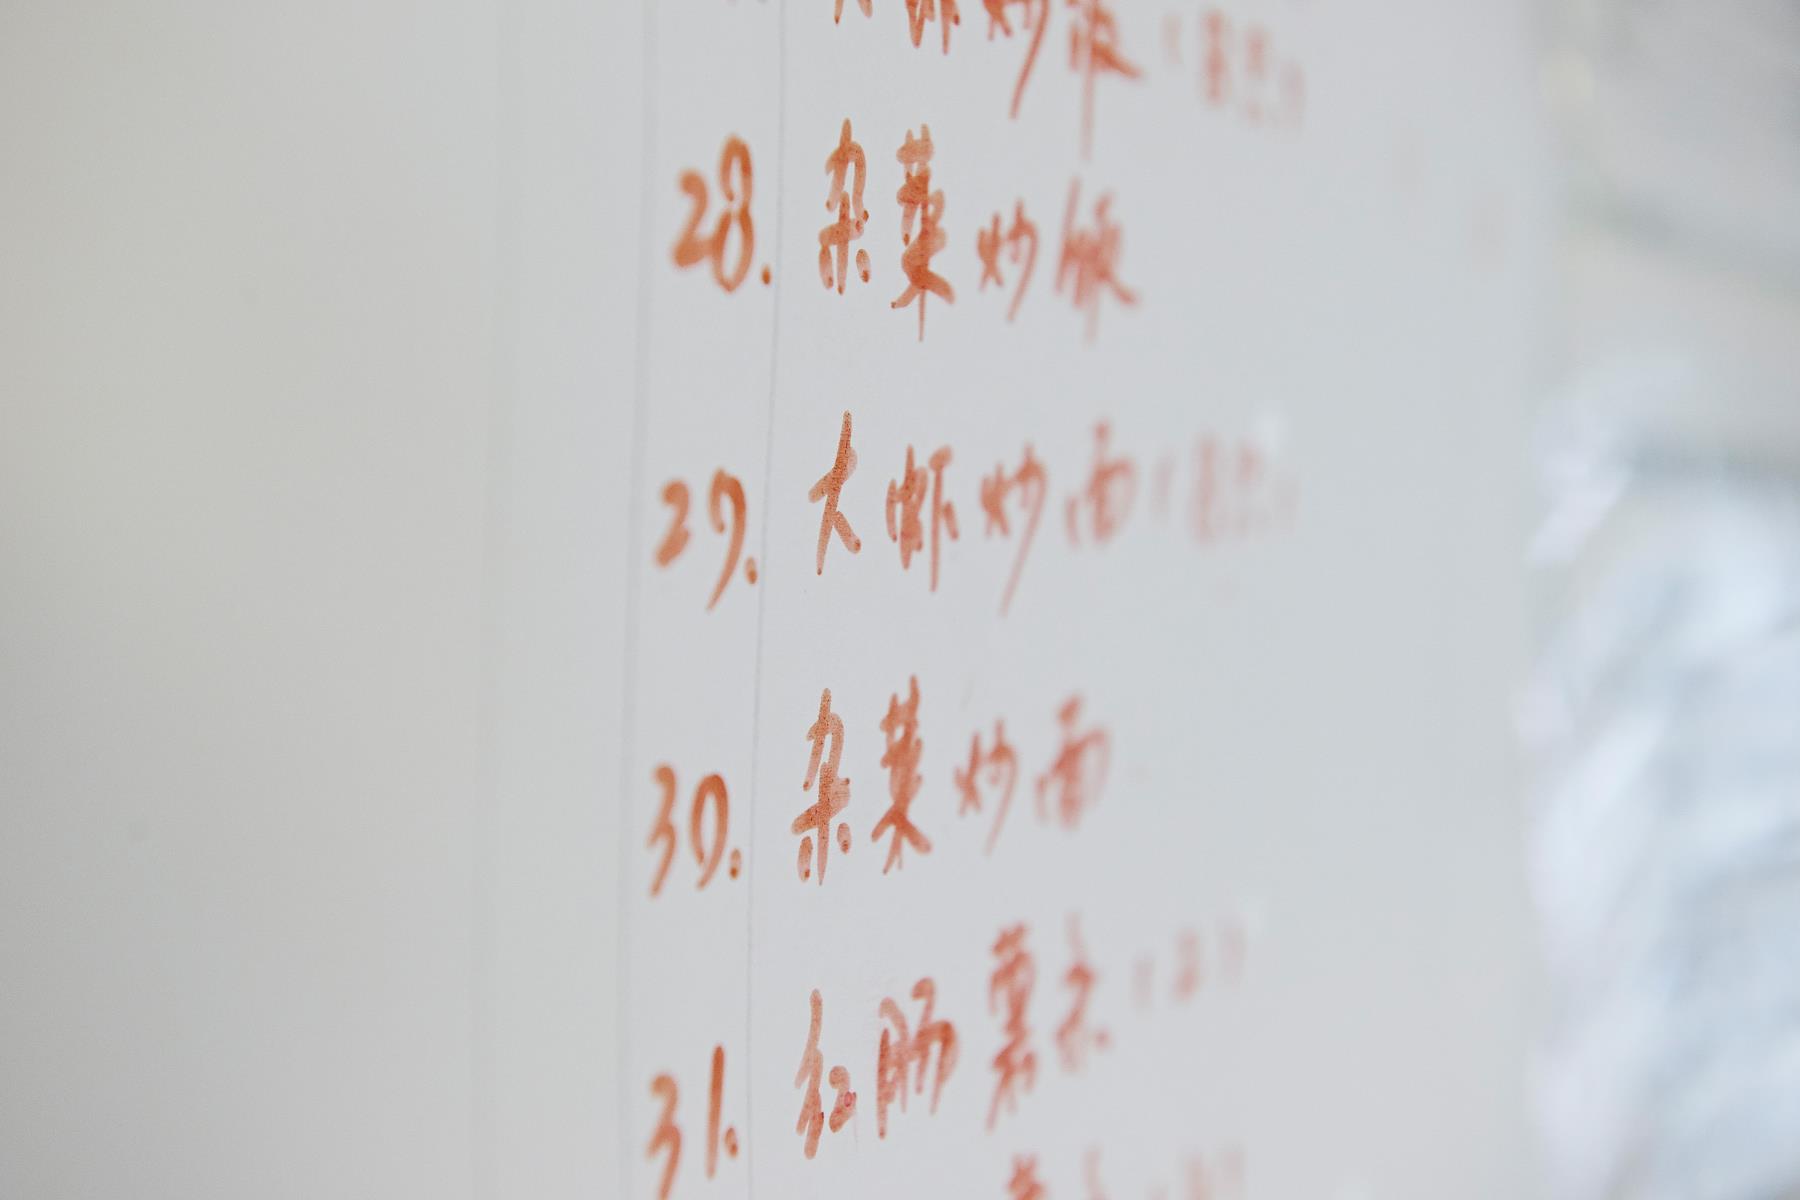 大虾炒饭
28. 杂菜炒饭
29. 大虾炒面
30. 杂菜炒面
31. 红肠薯条